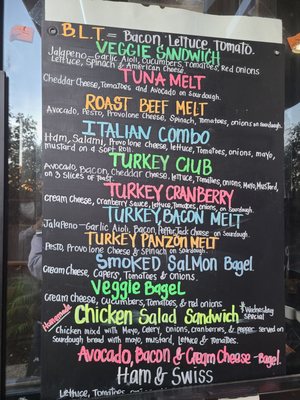 B.L.T. = Bacon, Lettuce, Tomato.
VEGGIE SANDWICH
Jalapeño-Garlic Aioli, Cucumbers, Tomatoes, Red onions
Lettuce, Spinach & American Cheese.
TUNA MELT
Cheddar Cheese, Tomatoes and Avocado on Sourdough.
ROAST BEEF MELT
Avocado, Pesto, Provolone Cheese, Spinach, Tomatoes, onions on Sourdough.
ITALIAN COMBO
Ham, Salami, Provolone cheese, lettuce, Tomatoes, onions, mayo,
mustard on a Soft Roll.
TURKEY CLUB
Avocado, Bacon, Cheddar Cheese, Lettuce, Tomatoes, onions, Mayo, Mustard,
on 3 slices of Toast.
TURKEY CRANBERRY
Cream Cheese, Cranberry Sauce, Lettuce, Tomatoes, onions, on Sourdough.
TURKEY BACON MELT
Jalapeño-Garlic Aioli, Bacon, PepperJack Cheese on Sourdough.
TURKEY PANZON MELT
Pesto, Provolone Cheese & Spinach on Sourdough.
Smoked Salmon Bagel
Cream Cheese, Capers, Tomatoes & onions.
Veggie Bagel
Cream cheese, Cucumbers, Tomatoes, & red onions
Homemade Chicken Salad Sandwich Wednesday Special
Chicken mixed with Mayo, Celery, Onions, cranberries, & Pepper. served on
Sourdough bread with mayo, mustard, Lettuce & Tomatoes.
Avocado, Bacon & Cream Cheese-Bagel
Ham & Swiss
Lettuce, Tomatoes,